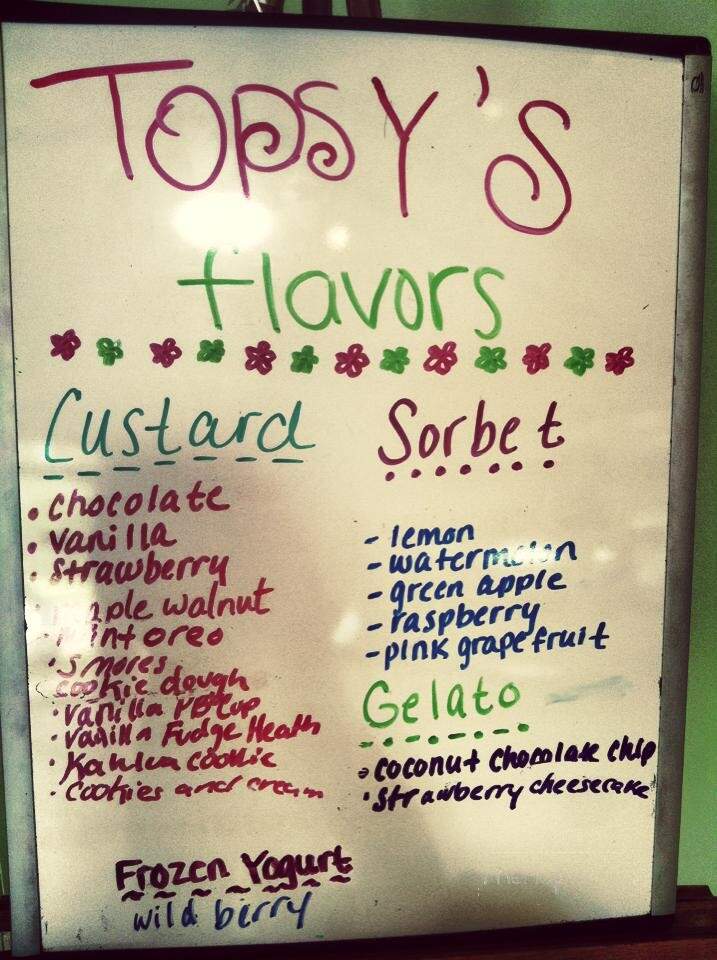 TOPSY'S
flavors
Custard
• chocolate
• vanilla
• strawberry
• maple walnut
• mint oreo
• s'mores
cookie dough
• vanilla PB cup
• vanilla Fudge Heath
• Kahlua cookie
• Cookies and cream
Sorbet
- lemon
- watermelon
- green apple
- raspberry
- pink grapefruit
Gelato
• coconut chocolate chip
• strawberry cheesecake
Frozen Yogurt
wild berry